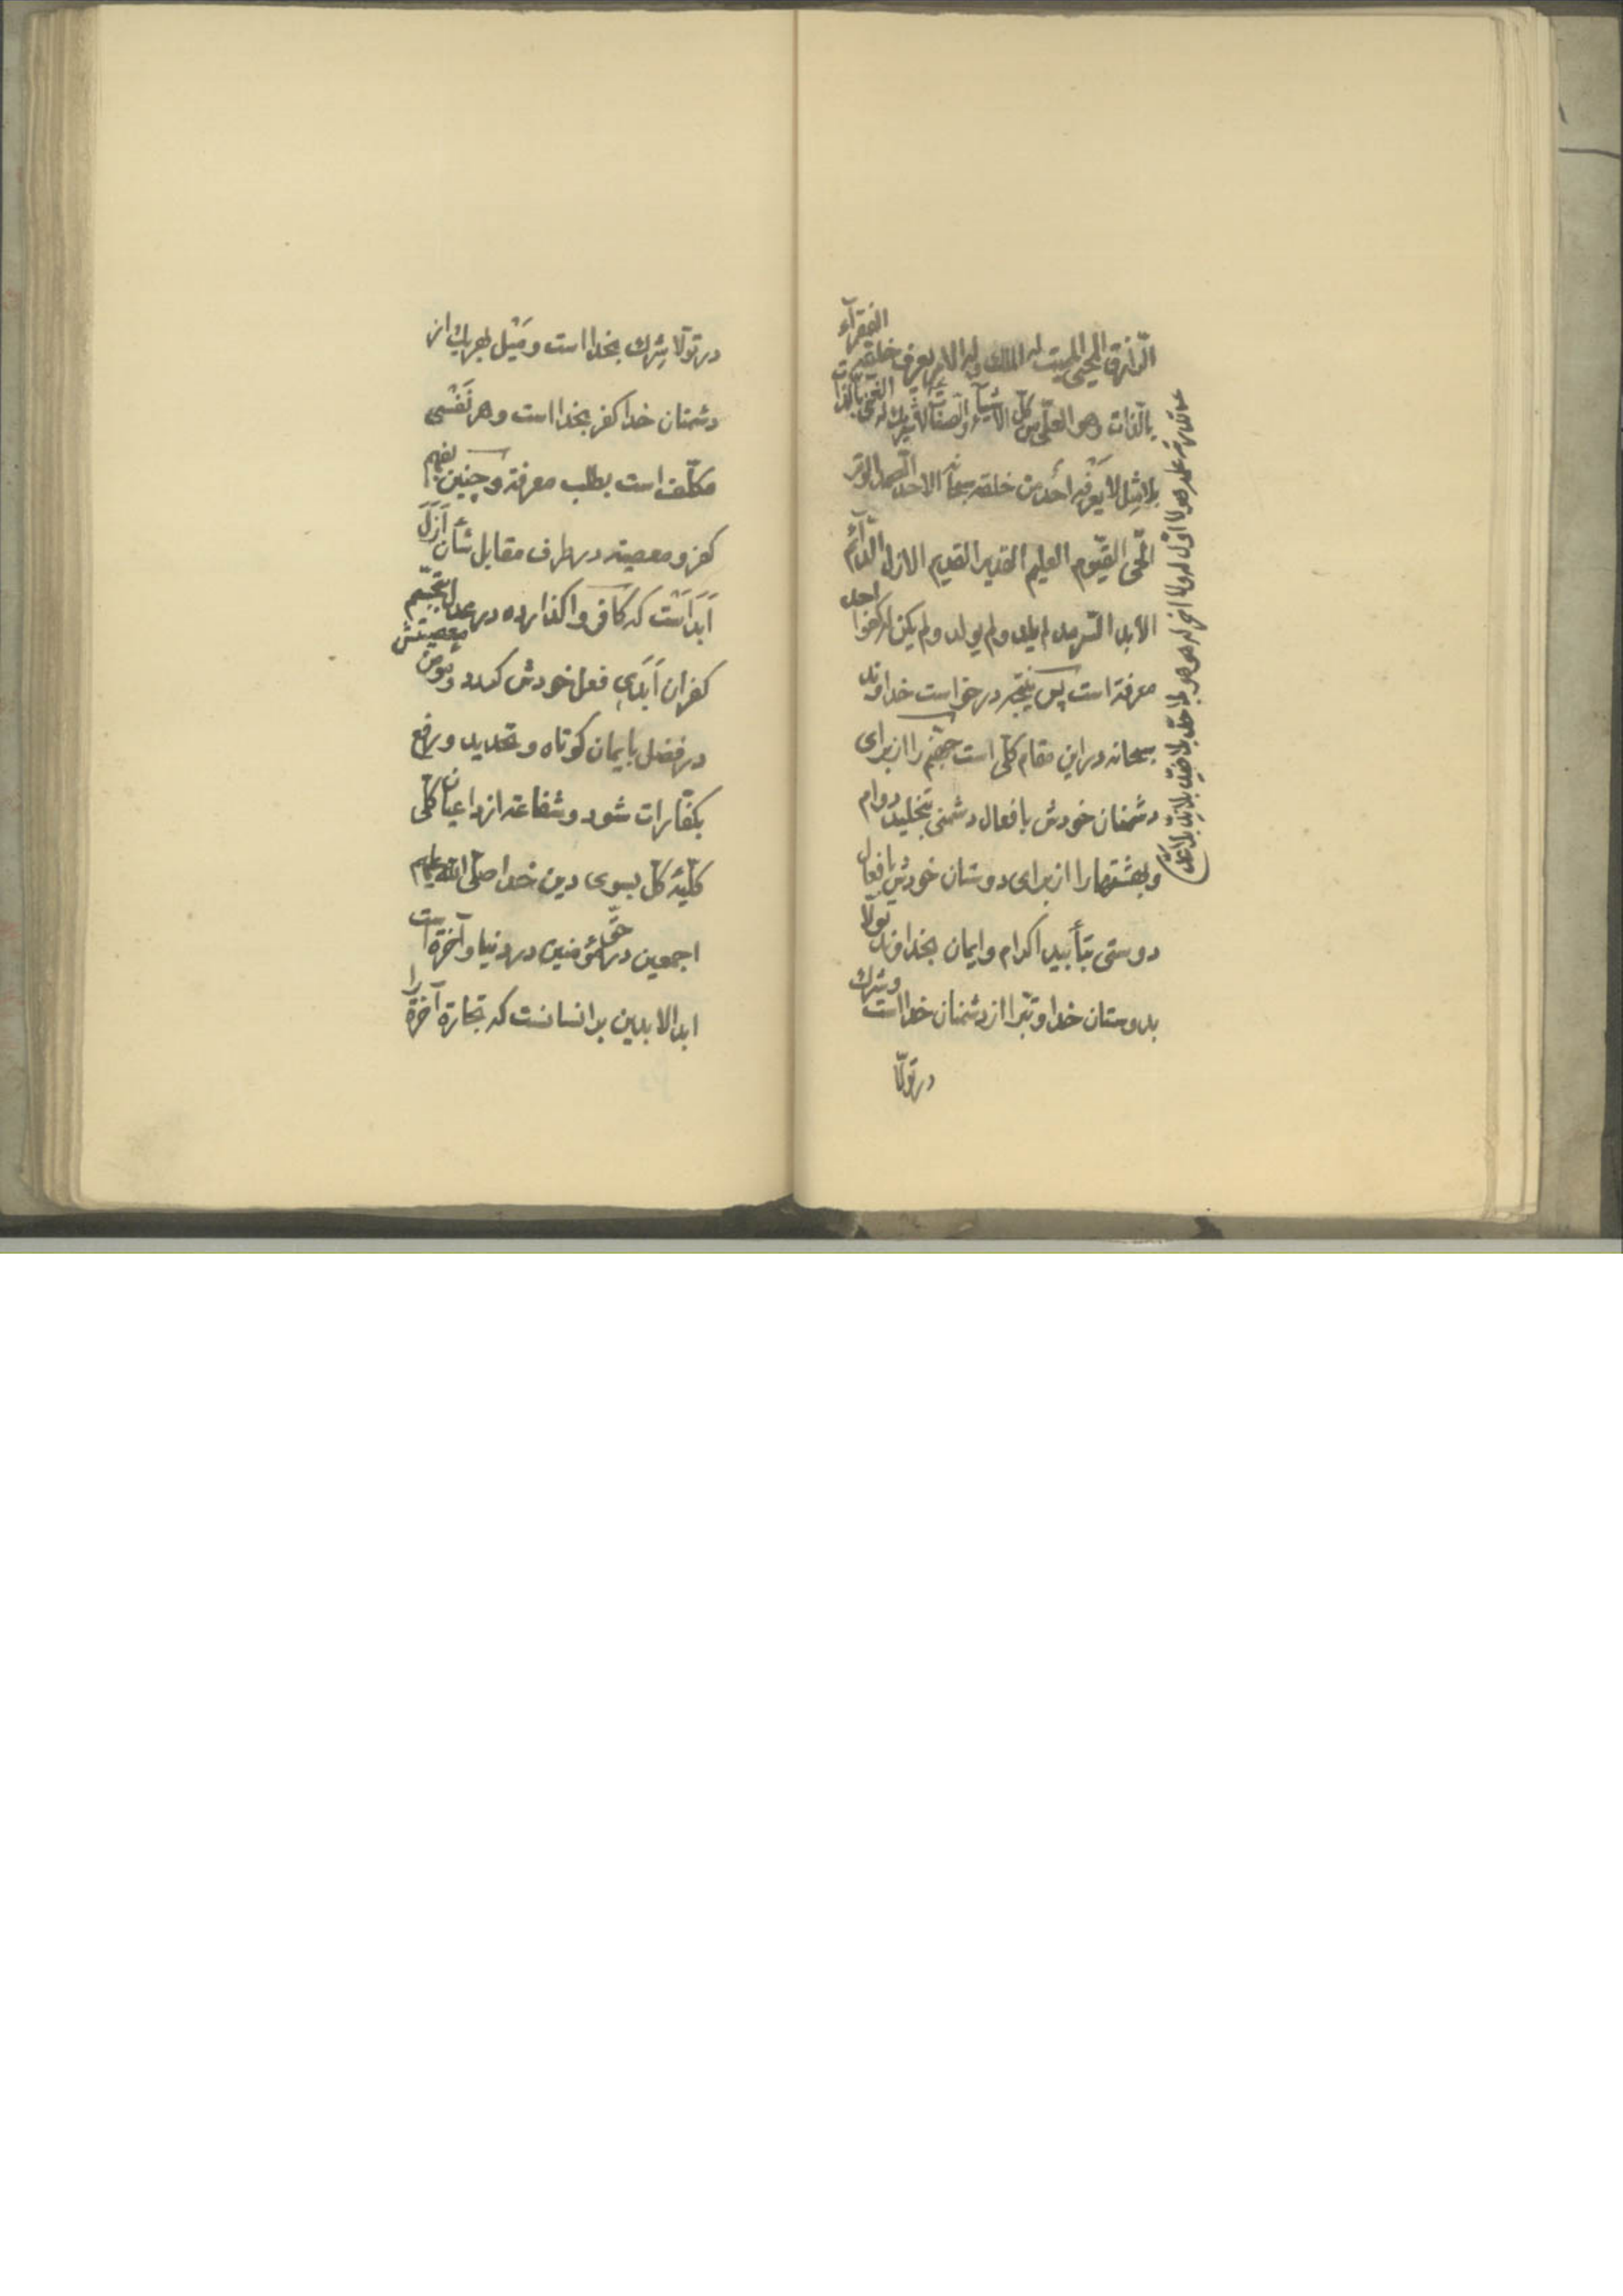 الرّازق المحيى المميت له الملك وله الامر يعرف خلقه الفقرآء
بالذّات وهو العلّى من كلّ الاشيآء والصّفات لا شريك له الغنىّ بالذّات
بلا مِثل لا يَعْرفه احَد من خلقه سبحانه الاحد الصّمد الوتر
الحّى القيّوم العليم القدير القديم الازل الدّآئم
الابد السّرمد لم يلد ولم يولد ولم يكن له كفوا احد
معرفة است پس نتيجه درخواست خداوند
سبحانه در اين مقام كلّى است جهنّم را از براى
دشمنان خودش بافعال دشمنى بتخليد دوام
وبهشتها را از براى دوستان خودش بافعال
دوستى بتأبيد اكرام وايمان بخداوند تولّا
بدوستان خدا وتبرّا از دشمنان خدا است وشرك
در تولّا
در تولّا شرك بخدا است ومَيْل بهريك از
دشمنان خدا كفر بخدا است وهر نَفْسى
مكلّف است بطلب معرفة وچنين بفهم
كفر ومعصية در طرف مقابل شأن اَزَلَ
اَبَد اَسْت كه كافر واكذارده در عدل بتجسّم معصيتش
كفران اَبَدَىِ فعل خودش كردد ومؤمن
در فضل بايمان كوتاه وتحديد ورفع
بكفّارات شود وشفاعة از داعيان كلّى
كليّهٔ كلّ بسوى دين خدا صلّى اللّه عليهم
اجمعين در حقّ مؤمنين در دنيا وآخرة است
ابد الابدين بر انسانست كه تجارة آخرة را